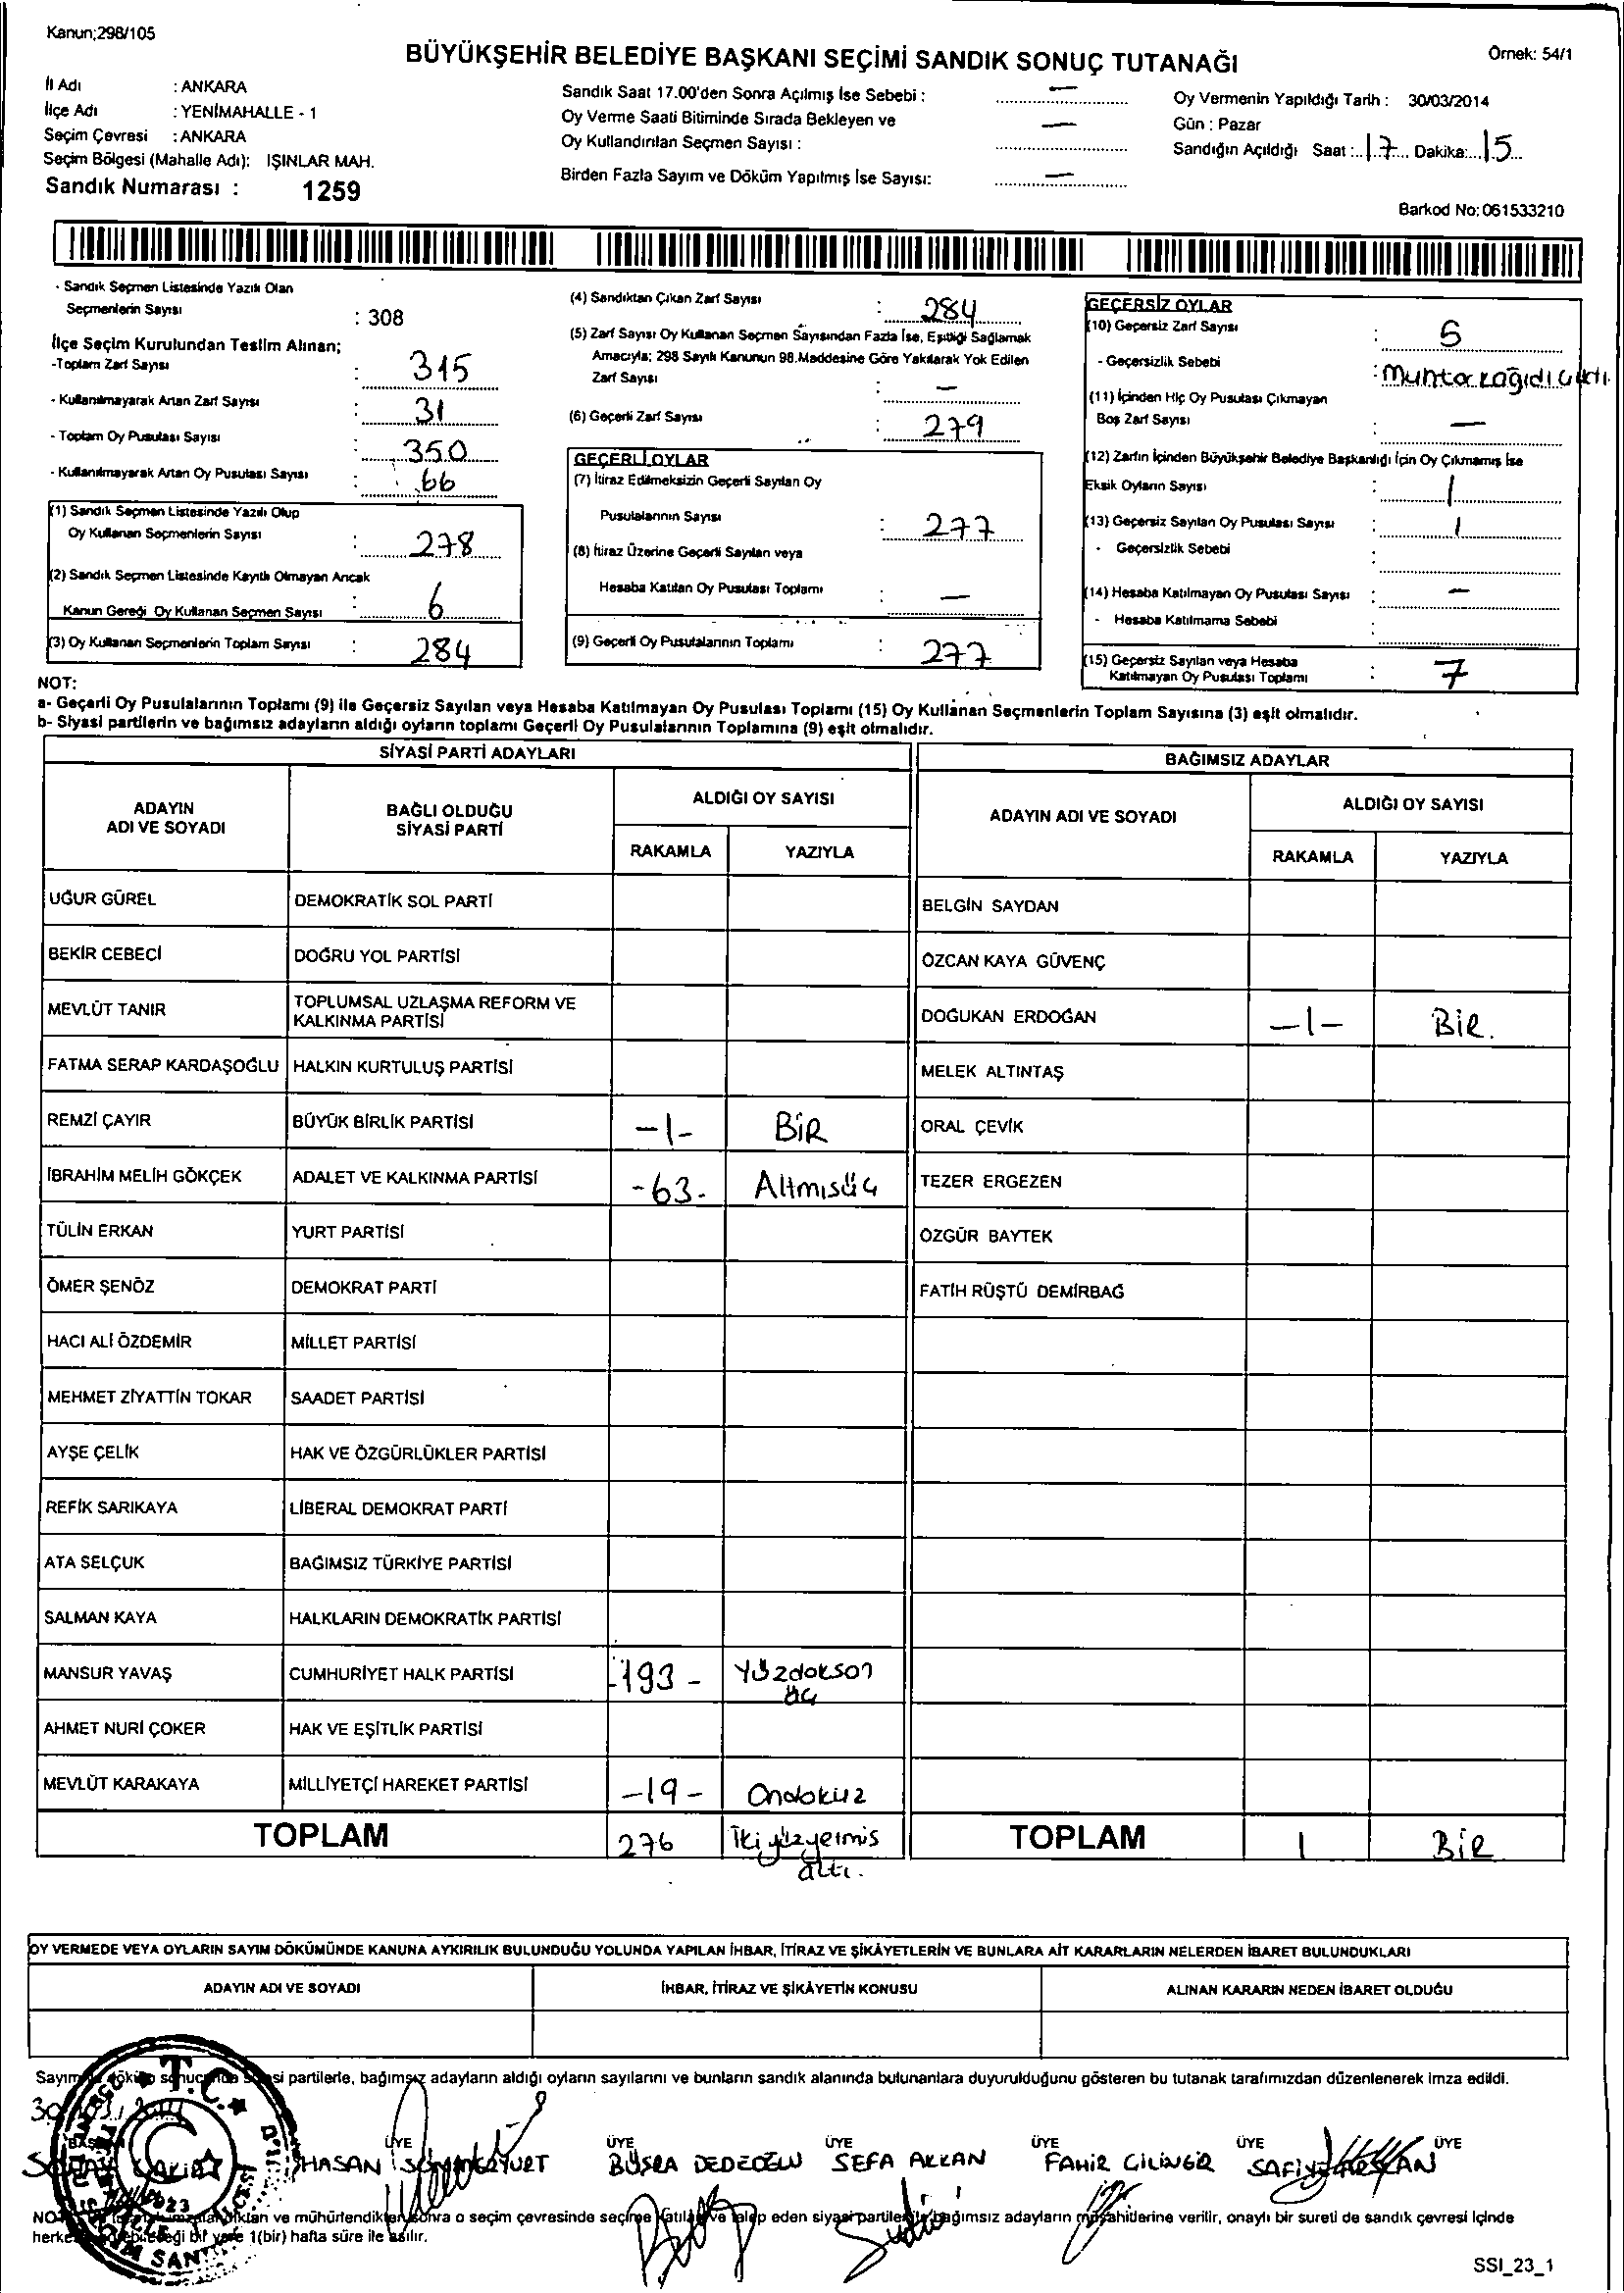 Kanun;298/105
BÜYÜKŞEHİR BELEDİYE BAŞKANI SEÇİMİ SANDIK SONUÇ TUTANAĞI
Örnek: 54/1
İl Adı : ANKARA
İlçe Adı : YENİMAHALLE - 1
Seçim Çevresi : ANKARA
Seçim Bölgesi (Mahalle Adı): IŞINLAR MAH.
Sandık Numarası : 1259
Sandık Saat 17.00'den Sonra Açılmış İse Sebebi : —
Oy Verme Saati Bitiminde Sırada Bekleyen ve
Oy Kullandırılan Seçmen Sayısı : —
Birden Fazla Sayım ve Döküm Yapılmış İse Sayısı: —
Oy Vermenin Yapıldığı Tarih : 30/03/2014
Gün : Pazar
Sandığın Açıldığı Saat : 17 Dakika: 15
Barkod No: 061533210
- Sandık Seçmen Listesinde Yazılı Olan
Seçmenlerin Sayısı : 308
İlçe Seçim Kurulundan Teslim Alınan;
-Toplam Zarf Sayısı : 315
- Kullanılmayarak Artan Zarf Sayısı : 31
- Toplam Oy Pusulası Sayısı : 350
- Kullanılmayarak Artan Oy Pusulası Sayısı : 66
(1) Sandık Seçmen Listesinde Yazılı Olup
Oy Kullanan Seçmenlerin Sayısı : 278
(2) Sandık Seçmen Listesinde Kayıtlı Olmayan Ancak
Kanun Gereği Oy Kullanan Seçmen Sayısı : 6
(3) Oy Kullanan Seçmenlerin Toplam Sayısı : 284
(4) Sandıktan Çıkan Zarf Sayısı : 284
(5) Zarf Sayısı Oy Kullanan Seçmen Sayısından Fazla İse, Eşitliği Sağlamak
Amacıyla; 298 Sayılı Kanunun 98.Maddesine Göre Yakılarak Yok Edilen
Zarf Sayısı : —
(6) Geçerli Zarf Sayısı : 279
GEÇERLİ OYLAR
(7) İtiraz Edilmeksizin Geçerli Sayılan Oy
Pusulalarının Sayısı : 277
(8) İtiraz Üzerine Geçerli Sayılan veya
Hesaba Katılan Oy Pusulası Toplamı : —
(9) Geçerli Oy Pusulalarının Toplamı : 277
GEÇERSİZ OYLAR
(10) Geçersiz Zarf Sayısı : 5
- Geçersizlik Sebebi : Muhtar kağıdı çıktı.
(11) İçinden Hiç Oy Pusulası Çıkmayan
Boş Zarf Sayısı : —
(12) Zarfın İçinden Büyükşehir Belediye Başkanlığı İçin Oy Çıkmamış İse
Eksik Oyların Sayısı : 1
(13) Geçersiz Sayılan Oy Pusulası Sayısı : 1
- Geçersizlik Sebebi :
(14) Hesaba Katılmayan Oy Pusulası Sayısı : —
- Hesaba Katılmama Sebebi :
(15) Geçersiz Sayılan veya Hesaba
Katılmayan Oy Pusulası Toplamı : 7
NOT:
a- Geçerli Oy Pusulalarının Toplamı (9) ile Geçersiz Sayılan veya Hesaba Katılmayan Oy Pusulası Toplamı (15) Oy Kullanan Seçmenlerin Toplam Sayısına (3) eşit olmalıdır.
b- Siyasi partilerin ve bağımsız adayların aldığı oyların toplamı Geçerli Oy Pusulalarının Toplamına (9) eşit olmalıdır.
SİYASİ PARTİ ADAYLARI
ADAYIN ADI VE SOYADI
BAĞLI OLDUĞU SİYASİ PARTİ
ALDIĞI OY SAYISI
RAKAMLA YAZIYLA
UĞUR GÜREL DEMOKRATİK SOL PARTİ
BEKİR CEBECİ DOĞRU YOL PARTİSİ
MEVLÜT TANIR TOPLUMSAL UZLAŞMA REFORM VE KALKINMA PARTİSİ
FATMA SERAP KARDAŞOĞLU HALKIN KURTULUŞ PARTİSİ
REMZİ ÇAYIR BÜYÜK BİRLİK PARTİSİ -1- BİR
İBRAHİM MELİH GÖKÇEK ADALET VE KALKINMA PARTİSİ -63- Altmısüç
TÜLİN ERKAN YURT PARTİSİ
ÖMER ŞENÖZ DEMOKRAT PARTİ
HACI ALİ ÖZDEMİR MİLLET PARTİSİ
MEHMET ZİYATTİN TOKAR SAADET PARTİSİ
AYŞE ÇELİK HAK VE ÖZGÜRLÜKLER PARTİSİ
REFİK SARIKAYA LİBERAL DEMOKRAT PARTİ
ATA SELÇUK BAĞIMSIZ TÜRKİYE PARTİSİ
SALMAN KAYA HALKLARIN DEMOKRATİK PARTİSİ
MANSUR YAVAŞ CUMHURİYET HALK PARTİSİ -193- Yüzdoksan üç
AHMET NURİ ÇOKER HAK VE EŞİTLİK PARTİSİ
MEVLÜT KARAKAYA MİLLİYETÇİ HAREKET PARTİSİ -19- Ondokuz
TOPLAM 276 İkiyüzyetmis altı.
BAĞIMSIZ ADAYLAR
ADAYIN ADI VE SOYADI
ALDIĞI OY SAYISI
RAKAMLA YAZIYLA
BELGİN SAYDAN
ÖZCAN KAYA GÜVENÇ
DOĞUKAN ERDOĞAN -1- BİR.
MELEK ALTINTAŞ
ORAL ÇEVİK
TEZER ERGEZEN
ÖZGÜR BAYTEK
FATİH RÜŞTÜ DEMİRBAĞ
TOPLAM 1 BİR
OY VERMEDE VEYA OYLARIN SAYIM DÖKÜMÜNDE KANUNA AYKIRILIK BULUNDUĞU YOLUNDA YAPILAN İHBAR, İTİRAZ VE ŞİKÂYETLERİN VE BUNLARA AİT KARARLARIN NELERDEN İBARET BULUNDUKLARI
ADAYIN ADI VE SOYADI
İHBAR, İTİRAZ VE ŞİKÂYETİN KONUSU
ALINAN KARARIN NEDEN İBARET OLDUĞU
partilerle, bağımsız adayların aldığı oyların sayılarını ve bunların sandık alanında bulunanlara duyurulduğunu gösteren bu tutanak tarafımızdan düzenlenerek imza edildi.
T.C.
ÜYE ÜYE ÜYE ÜYE ÜYE ÜYE
HASAN BÜŞRA DEDEOĞLU SEFA AKKAN FAHİR ÇİLİNGİR
ve mühürlendikten sonra o seçim çevresinde seçime katılan ve talep eden siyasi partiler ile bağımsız adayların müşahitlerine verilir, onaylı bir sureti de sandık çevresi içinde
1(bir) hafta süre ile asılır.
SSI_23_1